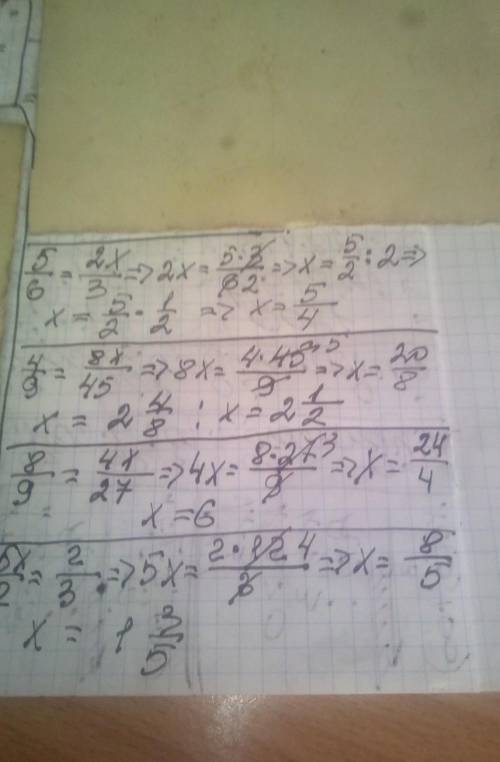 5/6 = 2x/3 => 2x = 5·3/6 2 => x = 5/2 : 2 =>
x = 5/2 · 1/2 => x = 5/4
4/9 = 8x/45 => 8x = 4·45 5/9 => x = 20/8
x = 2 4/8 ; x = 2 1/2
8/9 = 4x/27 => 4x = 8·27 3/9 => x = 24/4
x = 6
5x/12 = 2/3 => 5x = 2·12 4/3 => x = 8/5
x = 1 3/5